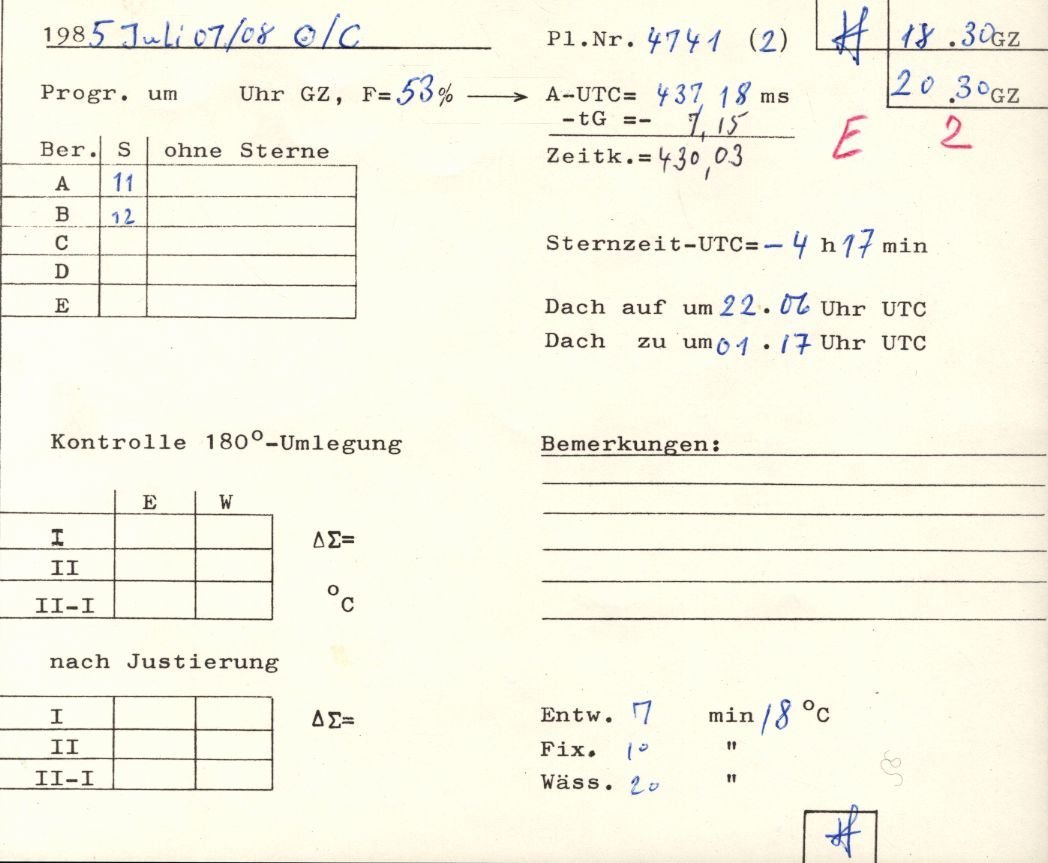 1985 Juli 07/08 O/C
Pl.Nr. 4741 (2)
18.30GZ
20.30GZ
Progr. um Uhr GZ, F=53% → A-UTC= 437,18 ms
-tG =- 7,15
Zeitk.= 430,03
E 2
Ber. S ohne Sterne
A 11
B 12
C
D
E
Sternzeit-UTC= -4 h 17 min
Dach auf um 22.06 Uhr UTC
Dach zu um 01.17 Uhr UTC
Kontrolle 180°-Umlegung
E W
I ΔΣ=
II
II-I °C
nach Justierung
I ΔΣ=
II
II-I
Bemerkungen:
Entw. 7 min 18 °C
Fix. 10 "
Wäss. 20 "